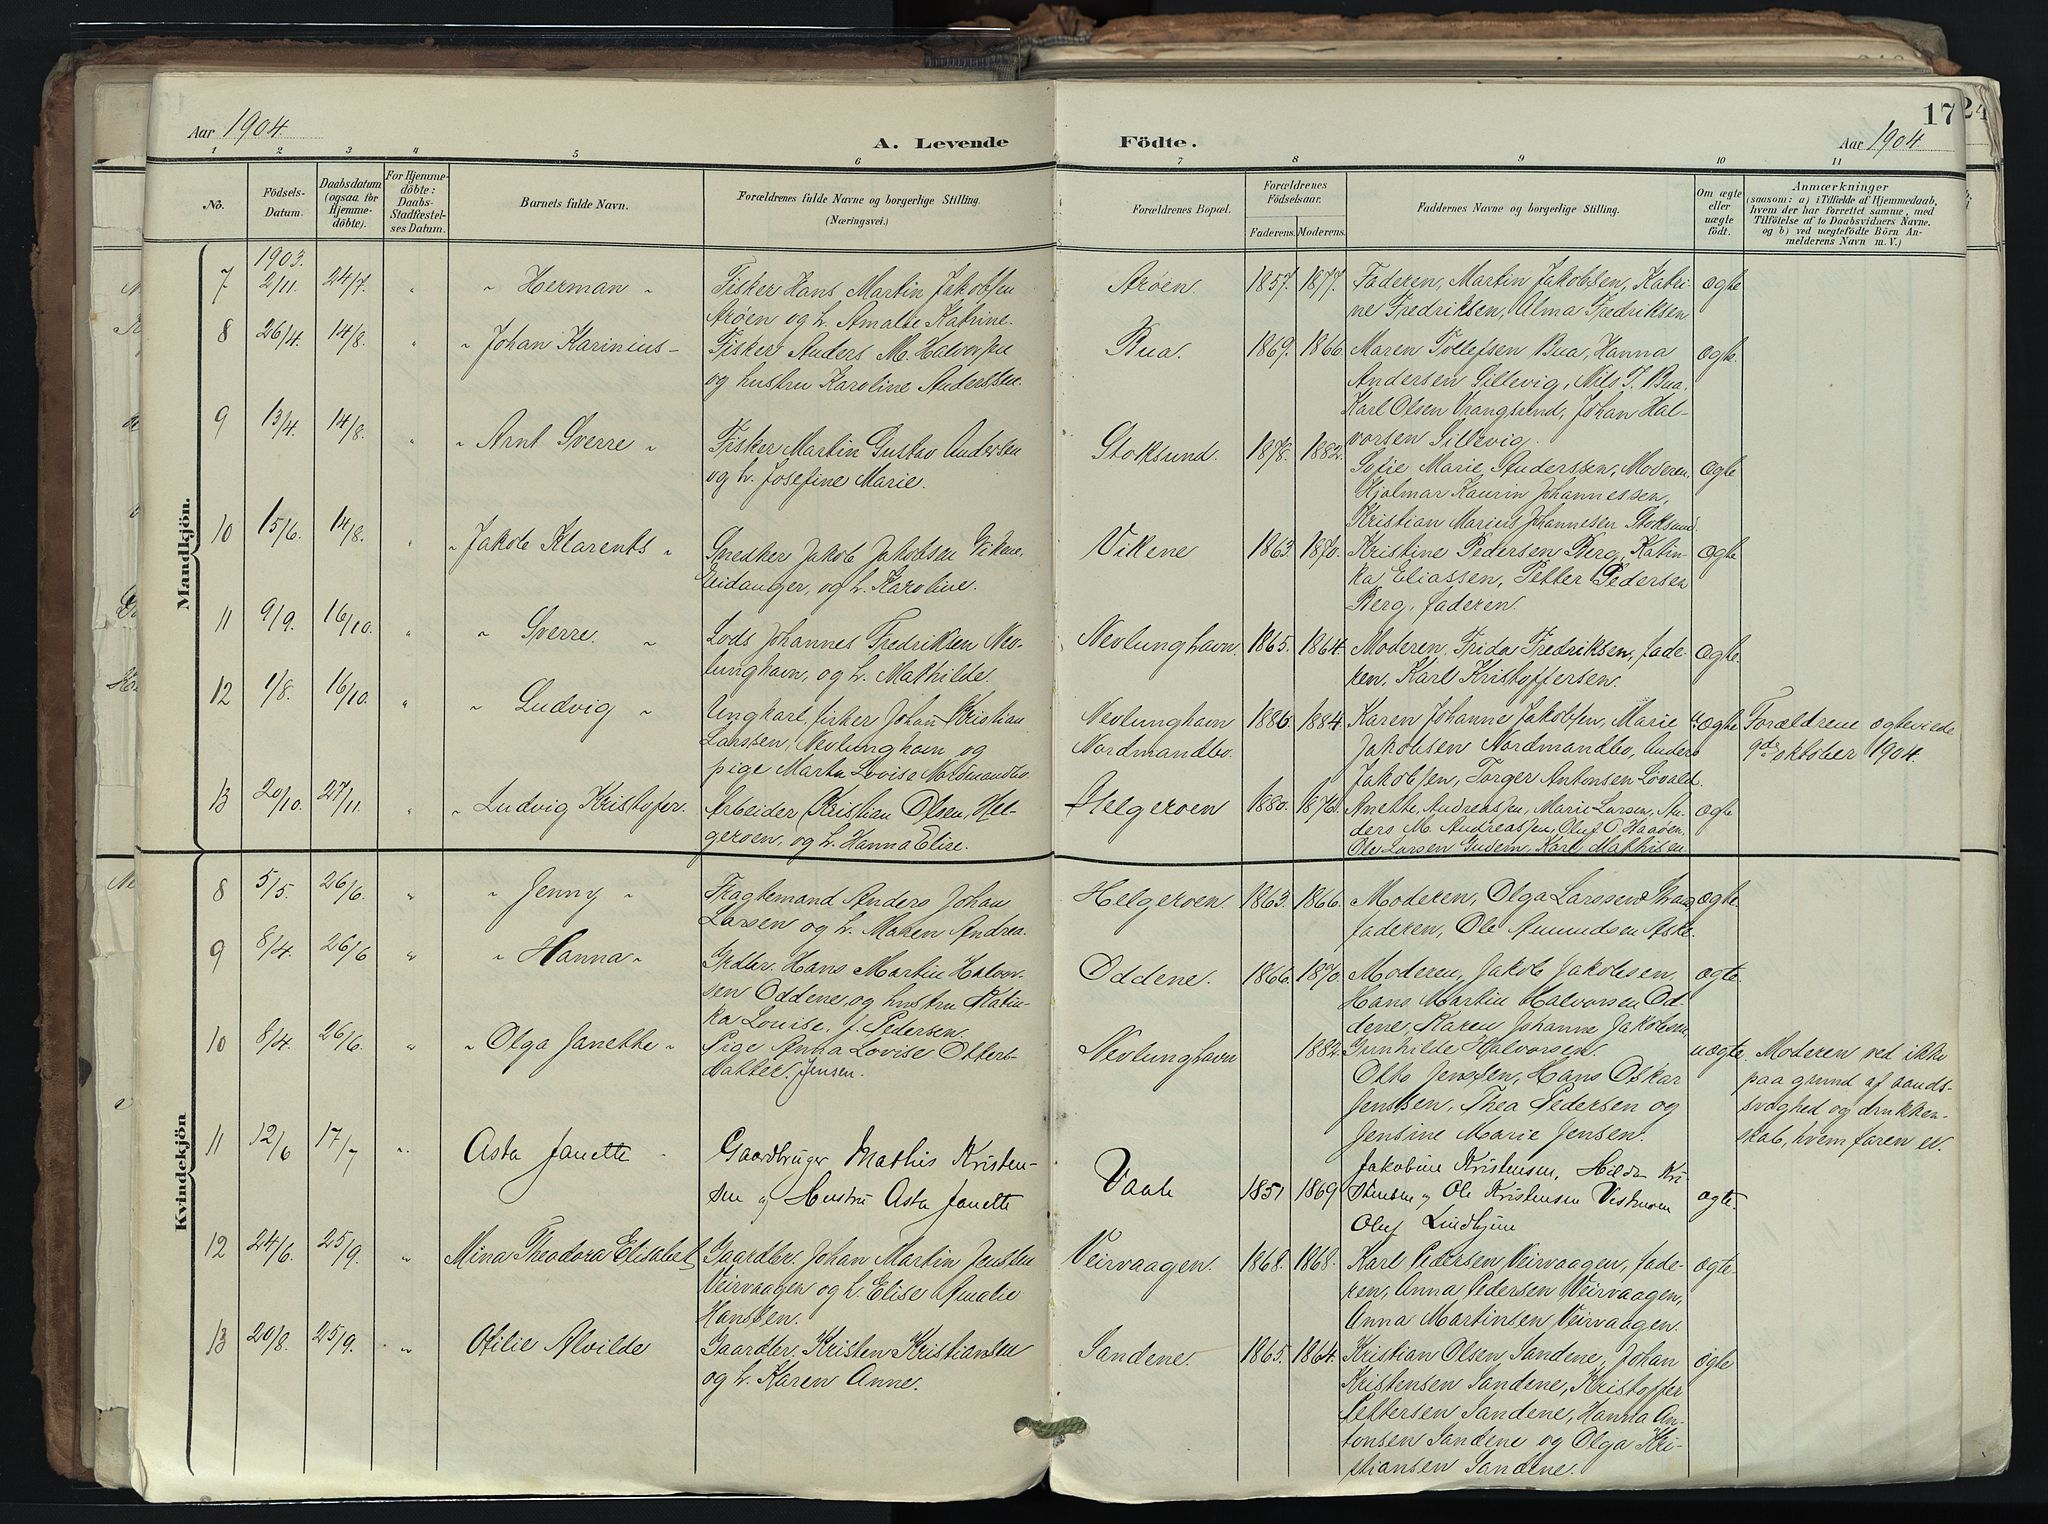 Aar 1904.
A. Levende Födte.
17
24
Aar 1904.
1 2 3 4 5 6 7 8 9 10 11
No.
Födsels-Datum.
Daabsdatum (ogsaa for Hjemme-döbte).
For Hjemme-döbte: Daabs-Stadfæstel-ses Datum.
Barnets fulde Navn.
Forældrenes fulde Navne og borgerlige Stilling. (Næringsvei.)
Forældrenes Bopæl.
Forældrenes Födselsaar.
Faderens. Moderens.
Faddernes Navne og borgerlige Stilling.
Om ægte eller uægte födt.
Anmærkninger
(saasom: a) i Tilfælde af Hjemmedaab,
hvem der har forrettet samme, med
Tilföielse af to Daabsvidners Navne.
og b) ved uægtefödte Börn An-
melderens Navn m. V.)
Mandkjön.
7 1903. 2/11. 24/7. " " Herman "
Fisker Hans Martin Jakobsen
Aröen og h. Amalie Katrine.
Aröen. 1857. 1877. Faderen, Martin Jakobsen, Katri-
ne Fredriksen, Alma Fredriksen
ægte
8 26/4. 14/8. " " Johan Karinius "
Fisker Anders M. Halvorsen
og hustru Karoline Anderssen.
Bua. 1869. 1866. Maren Tollefsen Bua, Hanna
Andersen Gillevig, Nils T. Bua.
Karl Olsen Vrangsund, Johan Hal-
vorsen Gillevig.
ægte.
9 13/4. 14/8. " " Arnt Sverre "
Fisker Martin Gustav Andersen
og h. Josefine Marie.
Stoksund. 1878. 1882. Sofie Marie Anderssen, Moderen,
Hjalmar Kaurin Johannessen,
Kristian Marius Johannesen Stoksund.
ægte
10 15/6. 14/8. " " Jakob Klarents "
Snedker Jakob Jakobsen Vikene,
Eidanger, og h. Karoline.
Vikene 1863 1870. Kristine Pedersen Berg, Katin-
ka Eliassen, Petter Pedersen
Berg, faderen.
ægte
11 9/9. 16/10. " " Sverre. "
Lods Johannes Fredriksen Nev-
lunghavn, og h. Mathilde.
Nevlunghavn. 1865. 1864. Moderen, Frida Fredriksen, fade-
ren, Karl Kristoffersen.
ægte.
12 1/8. 16/10. " " Ludvig "
Ungkarl, fisker Johan Kristian
Larssen, Nevlunghavn og
pige Marta Lovise Nordmandbo.
Nevlunghavn
Nordmandbo.
1886. 1884. Karen Johanne Jakobsen, Marie
Jakobsen Nordmandbo, Anders
Jakobsen, Torger Antonsen Lövald.
uægte Forældrene ægteviede
9de oktober 1904.
13 20/10. 27/11. " " Ludvig Kristofer.
Arbeider Kristian Olsen, Hel-
geroen, og h. Hanna Elise.
Helgeroen 1880. 1876. Anethe Andreassen, Marie Larsen, An-
ders M. Andreassen, Oluf O. Haaöen,
Ole Larsen Gusein, Karl Mathisen
ægte
Kvindekjön
8 5/5. 26/6. " " Jenny "
Fragtemand Anders Johan
Larsen og h. Maren Andrea
Helgeroen. 1863. 1866. Moderen, Olga Larssen
faderen, Ole Amundsen Aske.
ægte
9 8/4. 26/6 " " Hanna "
Grdbr. Hans Martin Halvor-
sen Oddene, og hustru Katin-
ka Louise, f. Pedersen.
Oddene. 1866. 1870. Moderen, Jakob Jakobsen,
Hans Martin Halvorsen Od-
dene, Karen Johanne Jakobsen,
Gunhilde Halvorsen.
ægte.
10 8/4. 26/6. " " Olga Janethe "
Pige Anna Lovise Otters-
datter. Jensen.
Nevlunghavn 1882. Otto Jenssen, Hans Oskar
Jenssen, Thea Pedersen og
Jensine Marie Jensen.
uægte. Moderen ved ikke
paa grund af aands-
svaghed og drukken-
skab, hvem faren er.
11 12/6 17/7 " Asta Janette
Gaardbruger Mathis Kristen-
sen og Hustru Asta Janette
Vaale 1851 1869 Jakobine Kristensen, Hilda Kri
stensen og Ole Kristensen
Oluf Lindhjem
ægte.
12 24/6. 25/9. " Mina Theodora Elisabet
Gaardbr. Johan Martin Jenssen
Veirvaagen og h. Elise Amalie
Hanssen.
Veirvaagen. 1868. 1868. Karl Pedersen Veirvaagen, fade-
ren, Anna Pedersen Veirvaagen,
Anna Martinsen Veirvaagen.
ægte.
13 20/8. 25/9. " Otilie Alvilde
Gaardbr. Kristen Kristiansen
og h. Karen Anne.
Sandene. 1865. 1864. Kristian Olsen Sandene, Johan
Kristensen Sandene, Kristoffer
Pettersen Sandene, Hanna An-
tonsen Sandene og Olga Kri-
stiansen Sandene.
ægte